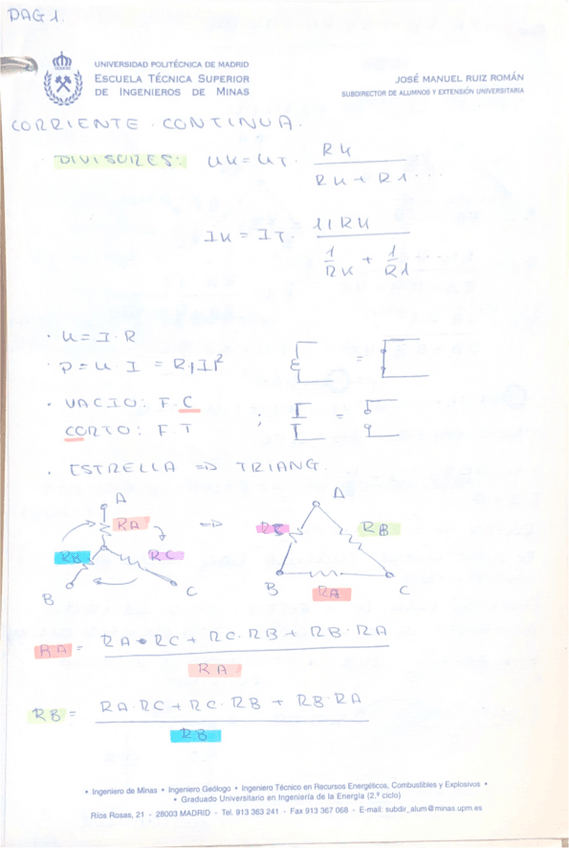 PAG 1.
UNIVERSIDAD POLITÉCNICA DE MADRID
ESCUELA TÉCNICA SUPERIOR
DE INGENIEROS DE MINAS
JOSÉ MANUEL RUIZ ROMÁN
SUBDIRECTOR DE ALUMNOS Y EXTENSIÓN UNIVERSITARIA
CORRIENTE CONTINUA.
· DIVISORES: UK = UT · RK / RK + R1 ...
IK = IT · 1/RK / 1/RK + 1/R1
· U = I · R
· P = U · I = R|I|²
=
· VACIO: F.C
CORTO: F.T
; =
· ESTRELLA => TRIANG.
A
RA
RB
RC
B
C
=>
A
RC
RB
B
RA
C
RA = RA · RC + RC · RB + RB · RA / RA
RB = RA · RC + RC · RB + RB · RA / RB
• Ingeniero de Minas • Ingeniero Geólogo • Ingeniero Técnico en Recursos Energéticos, Combustibles y Explosivos •
• Graduado Universitario en Ingeniería de la Energía (2.º ciclo)
Ríos Rosas, 21 - 28003 MADRID - Tel. 913 363 241 - Fax 913 367 068 - E-mail: subdir_alum@minas.upm.es